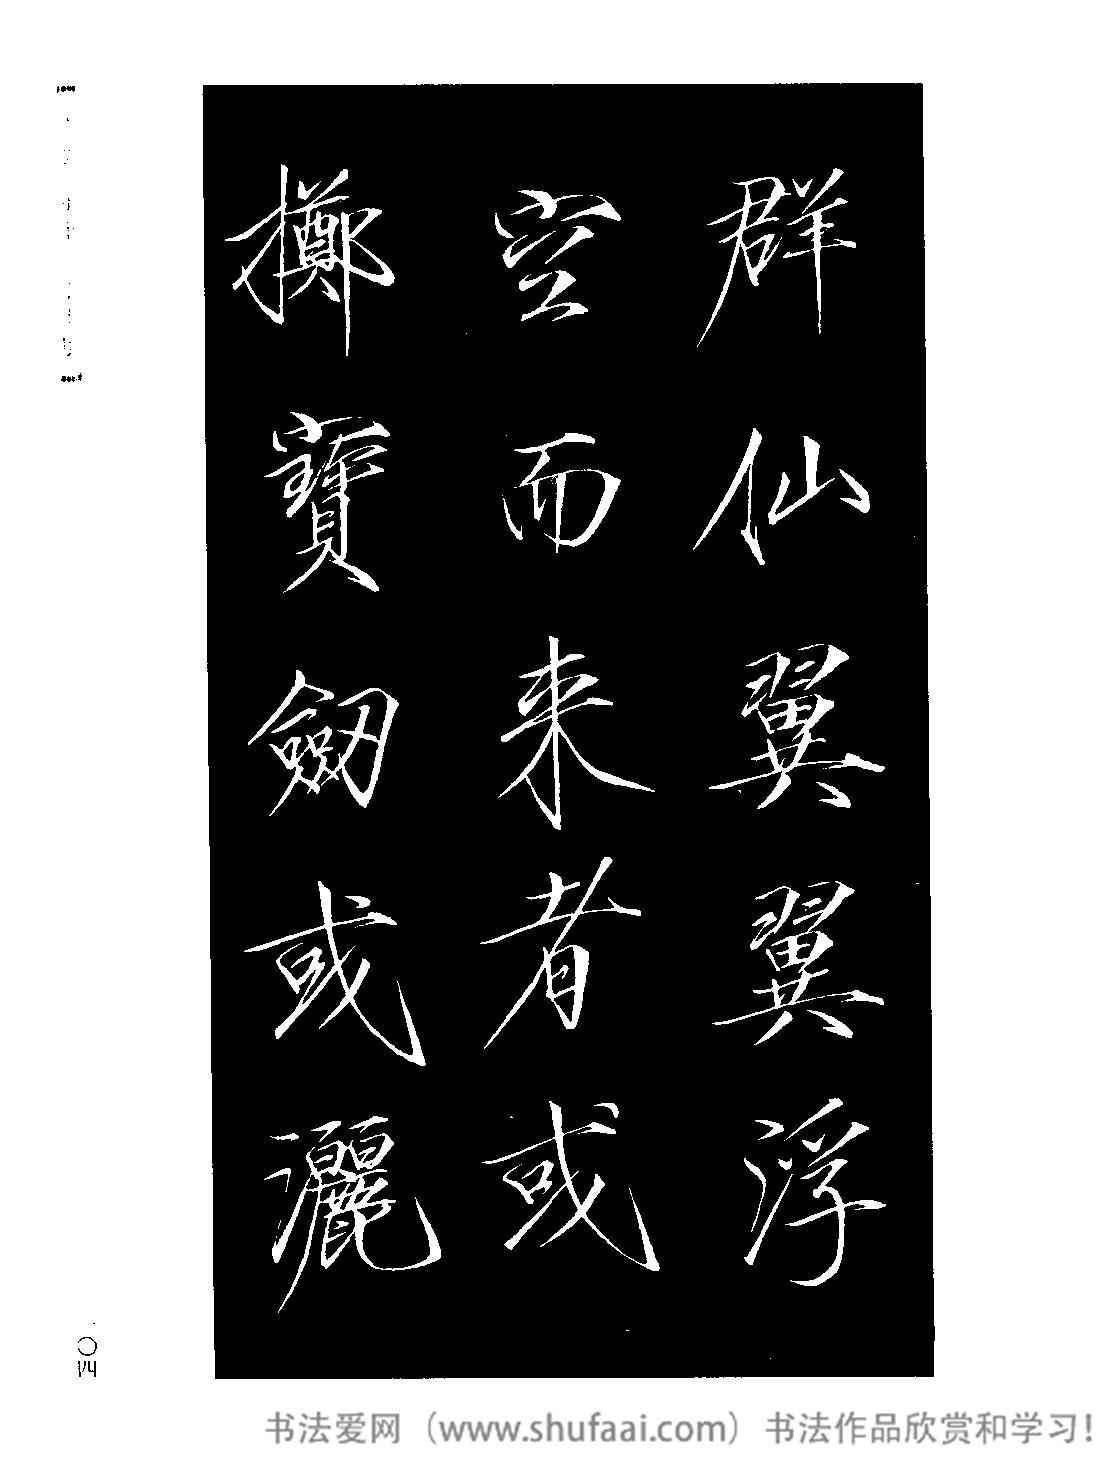 群仙翼翼浮
空而来者或
擲寶劔或灑
書法爱网（www.shufaai.com）书法作品欣赏和学习！